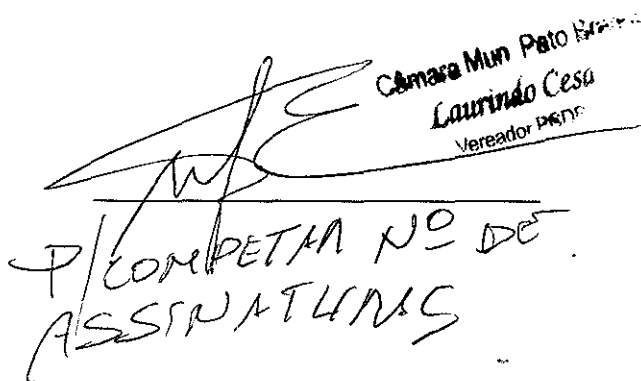 Câmara Mun Pato
Laurindo Cesa
Vereador PSDB
P/COMPETAR Nº DE
ASSINATURAS